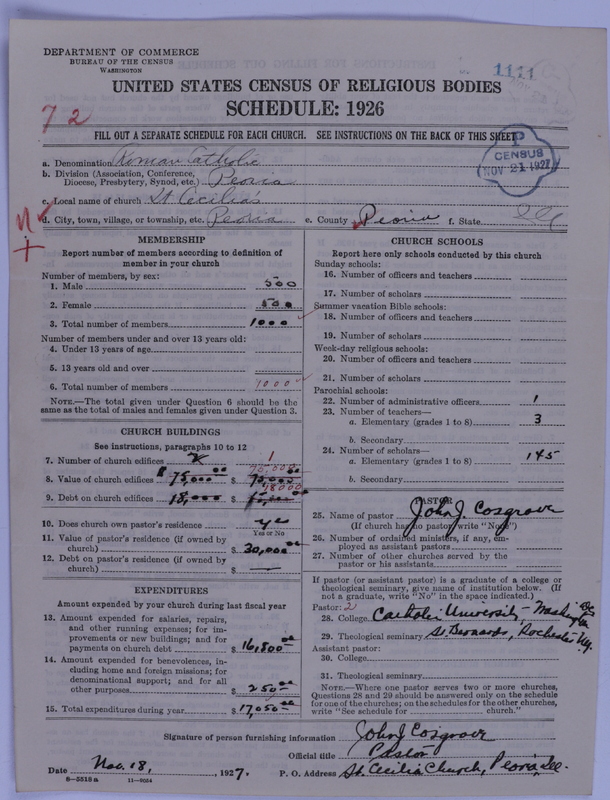 DEPARTMENT OF COMMERCE
BUREAU OF THE CENSUS
WASHINGTON
1111
UNITED STATES CENSUS OF RELIGIOUS BODIES
SCHEDULE: 1926
72
FILL OUT A SEPARATE SCHEDULE FOR EACH CHURCH. SEE INSTRUCTIONS ON THE BACK OF THIS SHEET
P
CENSUS
NOV 21 1927
a. Denomination Roman Catholic
b. Division (Association, Conference,
Diocese, Presbytery, Synod, etc.) Peoria
c. Local name of church St Cecilia's
d. City, town, village, or township, etc. Peoria e. County Peoria f. State Ill
MEMBERSHIP
Report number of members according to definition of
member in your church
Number of members, by sex:
1. Male 500
2. Female 500
3. Total number of members 1000
Number of members under and over 13 years old:
4. Under 13 years of age
5. 13 years old and over
6. Total number of members 1000
NOTE.—The total given under Question 6 should be
the same as the total of males and females given under Question 3.
CHURCH BUILDINGS
See instructions, paragraphs 10 to 12
7. Number of church edifices 1
75,000
8. Value of church edifices $ 75,000 00 $ 75,000
18000
9. Debt on church edifices 18,000 $
10. Does church own pastor's residence yes
Yes or No
11. Value of pastor's residence (if owned by
church) $ 30,000 00
12. Debt on pastor's residence (if owned by
church) $ —
EXPENDITURES
Amount expended by your church during last fiscal year
13. Amount expended for salaries, repairs,
and other running expenses; for im-
provements or new buildings; and for
payments on church debt $ 16,800 00
14. Amount expended for benevolences, in-
cluding home and foreign missions; for
denominational support; and for all
other purposes $ 250 00
15. Total expenditures during year $ 17,050 00
CHURCH SCHOOLS
Report here only schools conducted by this church
Sunday schools:
16. Number of officers and teachers
17. Number of scholars
Summer vacation Bible schools:
18. Number of officers and teachers
19. Number of scholars
Week-day religious schools:
20. Number of officers and teachers
21. Number of scholars
Parochial schools:
22. Number of administrative officers 1
23. Number of teachers—
a. Elementary (grades 1 to 8) 3
b. Secondary
24. Number of scholars—
a. Elementary (grades 1 to 8) 145
b. Secondary
PASTOR
25. Name of pastor John J. Cosgrove
(If church has no pastor write "None")
26. Number of ordained ministers, if any, em-
ployed as assistant pastors
27. Number of other churches served by the
pastor or his assistants
If pastor (or assistant pastor) is a graduate of a college or
theological seminary, give name of institution below. (If
not a graduate, write "No" in the space indicated.)
Pastor: 2
28. College Catholic University — Washington DC
29. Theological seminary St Bernards, Rochester Ny.
Assistant pastor:
30. College
31. Theological seminary
NOTE.—Where one pastor serves two or more churches,
Questions 28 and 29 should be answered only on the schedule
for one of the churches; on the schedules for the other churches,
write "See schedule for church."
Signature of person furnishing information John J Cosgrove
Official title Pastor
Date Nov. 18, 1927. P. O. Address St. Cecilia Church, Peoria, Ill.
8—5518a 11—8054